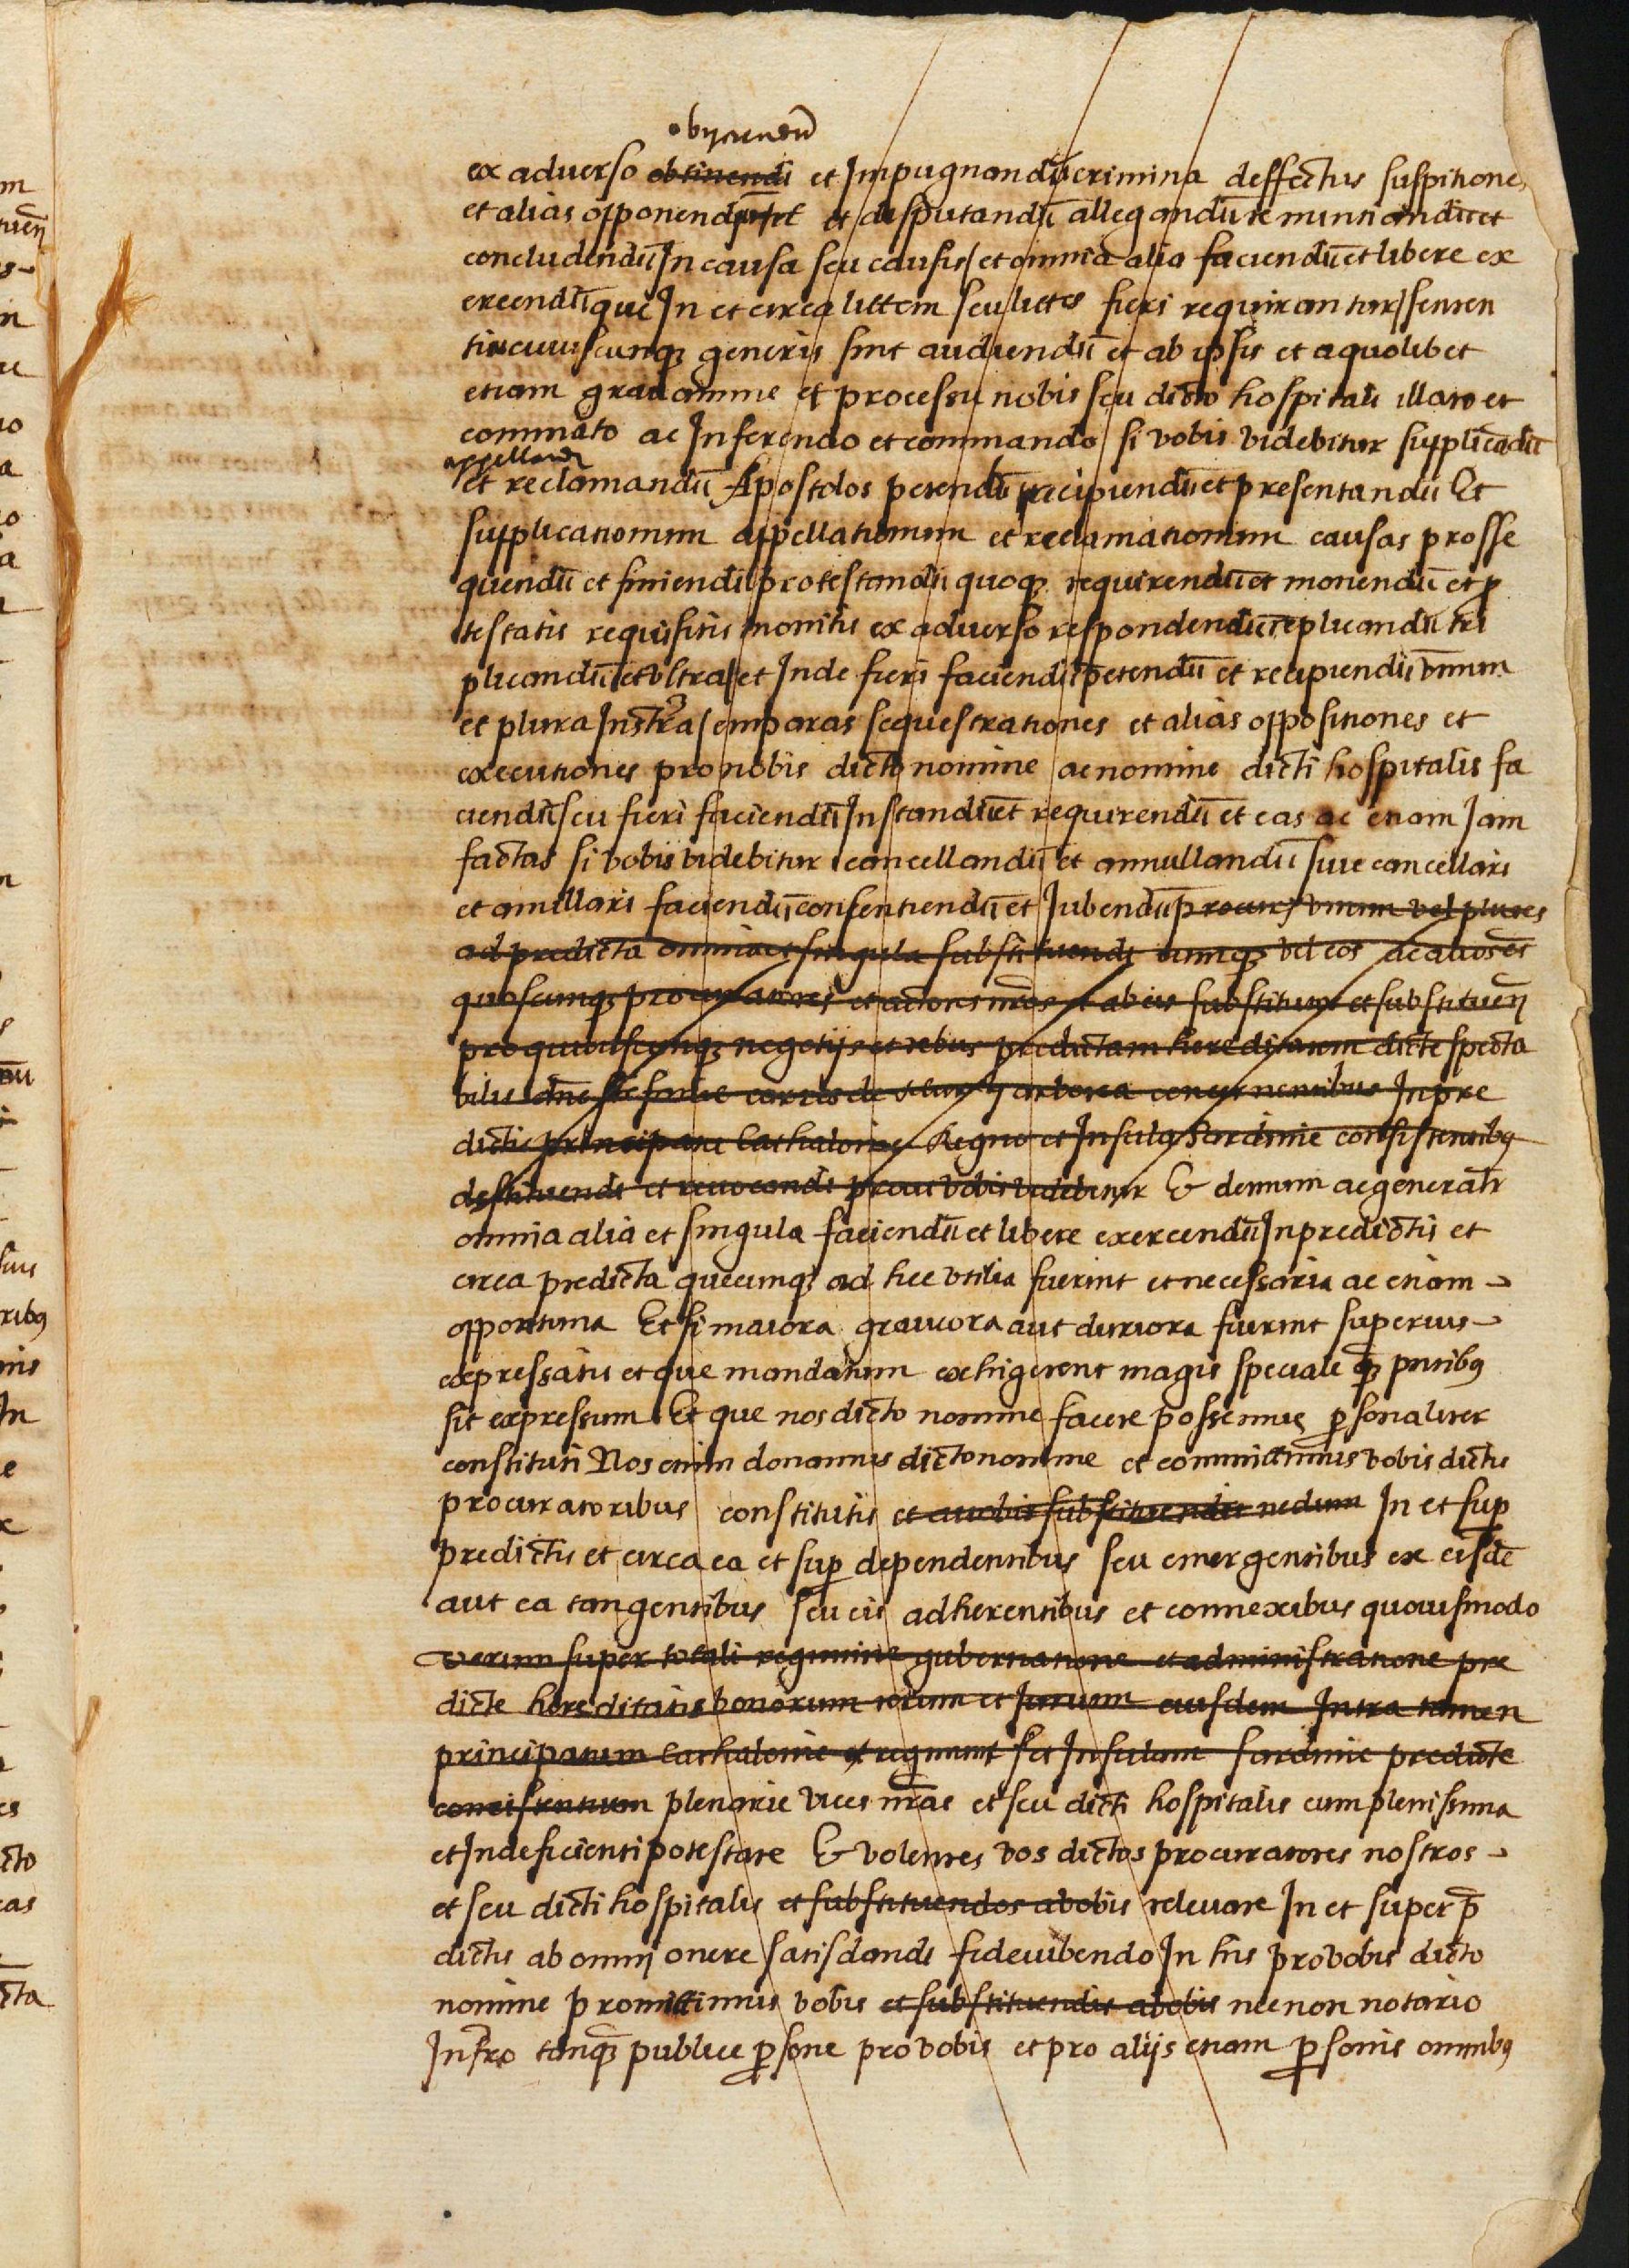 obijciendū
ex aduerso obtinendi et Impugnandū crimina deffectus suspitiones
et alias opponendū et disputandū allegandū renuntiandū et
concludendū In causa seu causis et omnia alia faciendū et libere ex
ercendū que In et circa littem seu littes fieri requirantur senten
tias cuiuscunq; generis sint audiendū et ab ipsis et a quolibet
etiam grauamine et processu nobis seu dicto hospitali illato et
comminato ac Inferendo et comminando si vobis videbitur supplicādū
appellandū
et reclamandū Apostolos petendū recipiendū et presentandū Et
supplicationum appellationum et reclamationum causas prosse
quendū et finiendū protestandū quoq; requirendū et monendū et p
testatis requisitis monitis ex aduerso respondendū replicandū tri
plicandū et vltra et Inde fieri faciendū petendū et recipiendū vnum
et plura Instra emparas sequestrationes et alias oppositiones et
executiones pro nobis dicto nomine ac nomine dicti hospitalis fa
ciendū seu fieri faciendū Instandū et requirendū et eas ac etiam Jam
factas si vobis videbitur cancellandū et annullandū siue cancellari
et anullari faciendū consentiendū et Jubendū procurj vnum vel plures
ad predicta omnia et singula substituendi eumq; vel eos ac alios et
quoscumq; procuratores et actores nros et ab eis substitutos et substituen
pro quibuscunq; negotijs et rebus predictam hereditatem dicte specta
bilis dne Stefanie carros de arborea concernentibus In pre
dictis principatu Cathalonie Regno et Insula Sardinie consistentibq
destituendi et reuocandi prout vobis videbitur Et demum ac generalr
omnia alia et singula faciendū et libere exercendū In predictis et
circa predicta quecumq; ad hec vtilia fuerint et necessaria ac etiam
opportuna Et si maiora grauiora aut duriora fuerint superius
expressatis et que mandatum exhigerent magis speciale q3 pntibq
sit expressum Et que nos dicto nomine facere possemus psonaliter
constituti Nos enim donamus dicto nomine et committimus vobis dictis
procuratoribus constitutis et a vobis substituendis nedum In et sup
predictis et circa ea et sup dependentibus seu emergentibus ex eisdē
aut ea tangentibus seu eis adherentibus et connexibus quouismodo
verum super totali regimine gubernatione et administratione pre
dicte hereditatis bonorum rerum et Jurium eiusdem Intra tamen
principatum Cathalonie et regnum set Insulam sardinie predicte
consistentium plenarie vices nras et seu dicti hospitalis cum plenissima
et Indeficienti potestate Et volentes vos dictos procuratores nostros
et seu dicti hospitalis et substituendos a vobis releuare In et super p
dictis ab omnj onere satisdandi fideiubendo In his pro vobis dicto
nomine promittimus vobis et substituendis a vobis necnon notario
Infro tanq3 publice psone pro vobis et pro alijs etiam psonis omnibq